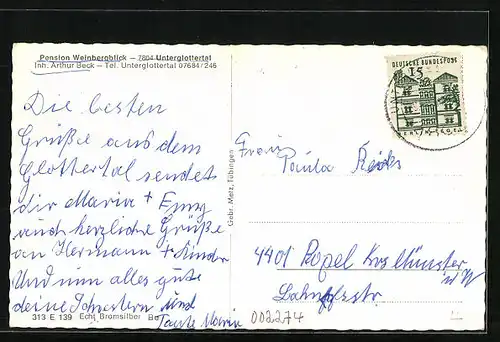 Pension Weinbergblick – 7804 Unterglottertal
Inh. Arthur Beck – Tel. Unterglottertal 07684/246
Die besten
Grüße aus dem
Glottertal sendet
dir Maria + Emy
auch herzliche Grüße
an Hermann + Kinder
Und nun alles gute
deine Schwestern und
Tante Maria
313 E 139 Echt Bromsilber
Gebr. Metz, Tübingen
DEUTSCHE BUNDESPOST
15
Frau
Paula
4401 Krs Münster
i/W
Bahnhofstr
002274